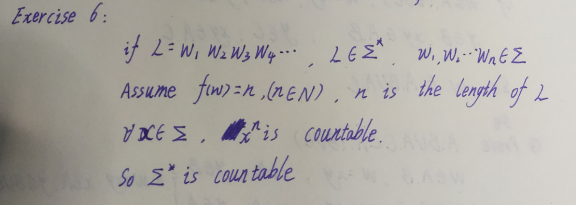 Exercise 6:
if L = w₁ w₂ w₃ w₄ ⋯ , L ∈ Σ* w₁, w₂ ⋯ wₙ ∈ Σ
Assume f(w) = n, (n ∈ N) , n is the length of L
∀ x ∈ Σ , xⁿ is countable.
So Σ* is countable